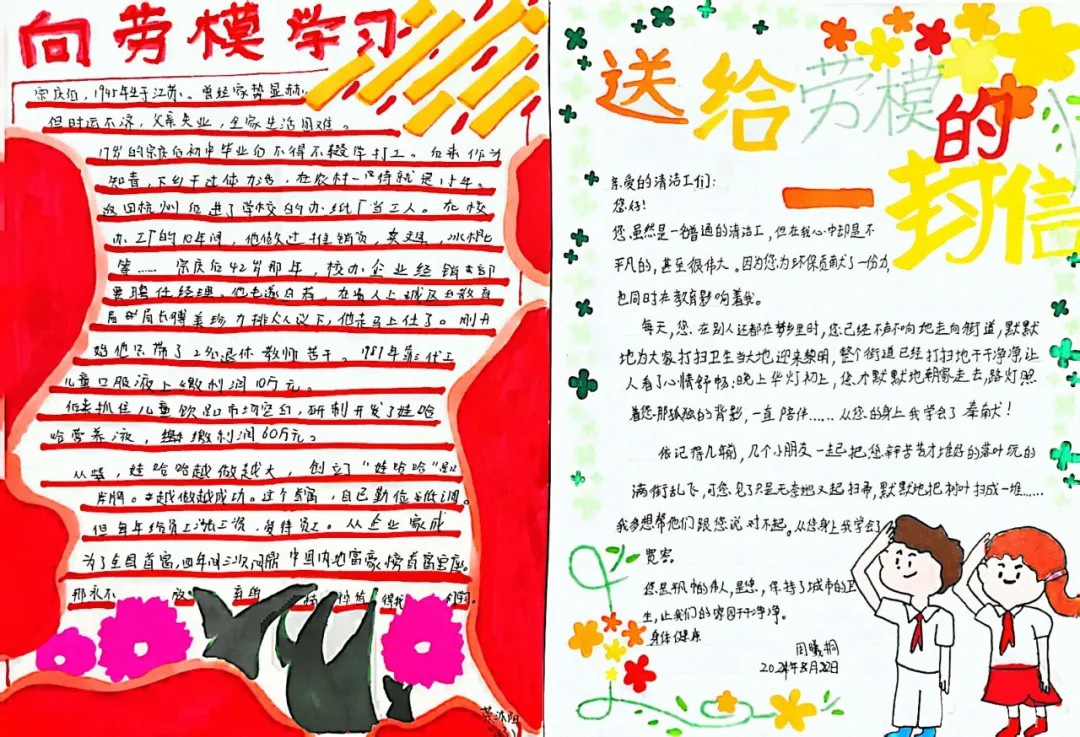 向劳模学习
宗庆后，1945年生于江苏。曾经家势显赫
但时运不济，父亲失业，全家生活困难。
17岁的宗庆后初中毕业后不得不辍学打工。后来作为
知青，下乡干过体力活，在农村一待就是15年。
返回杭州后进了学校的办纸厂当工人。在校
办工厂的10年间，他做过推销员，卖文具，冰棍
等……宗庆后42岁那年，校办企业经销部
要聘任经理。他毛遂自荐，在
局的局长傅美珍力排众议下，他走马上任了。刚开
始他只带了2个退休教师苦干。1987年靠代工
儿童口服液上缴利润10万元。
后来抓住儿童饮品市场空白，研制开发了娃哈
哈营养液，缴利润60万元。
从
，娃哈哈越做越大，创立了“娃哈哈”
牌。越做越成功。这个
，自己勤俭低调。
但每年给员工涨工资，善待员工。从企业家成
为了全国首富，四年间三次问鼎中国内地富豪榜首富宝座。
那永不
送给劳模的
一封信
亲爱的清洁工们：
您好！
您虽然是一名普通的清洁工，但在我心中却是不
平凡的，甚至很伟大。因为您为环保贡献了一份力，
也同时在教育影响着我。
每天，您在别人还都在梦乡里时，您已经不声不响地走向街道，默默
地为大家打扫卫生当大地迎来黎明，整个街道已经打扫地干干净净，让
人看了心情舒畅；晚上华灯初上，您才默默地朝家走去，路灯照
着您那孤独的背影，一直陪伴……从您的身上我学会了奉献！
依记得几年前，几个小朋友一起把您辛辛苦苦才堆好的落叶玩的
满街乱飞，可您见了只是无奈地又起扫帚，默默地把树叶扫成一堆……
我多想帮他们跟您说对不起。从您身上我学会了
宽容。
您是平凡中的伟人，是您，保持了城市的卫
生，让我们的家园干干净净。
身体健康
周曦桐
2024年3月20日